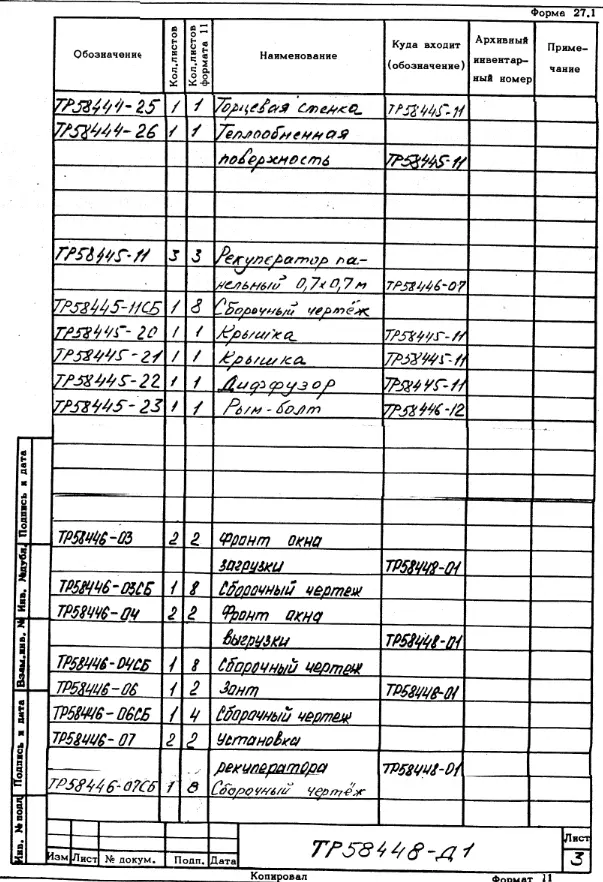 Форма 27.1
Обозначение Кол.листов Кол.листов формата 11 Наименование Куда входит (обозначение) Архивный инвентарный номер Примечание
ТР58444-25 1 1 Торцевая стенка ТР58445-11
ТР58444-26 1 1 Теплообменная
поверхность ТР58445-11
ТР58445-11 3 3 Рекуператор па-
нельный 0,7х0,7м ТР58446-07
ТР58445-11СБ 1 8 Сборочный чертёж
ТР58445-20 1 1 Крышка ТР58445-11
ТР58445-21 1 1 Крышка ТР58445-11
ТР58445-22 1 1 Диффузор ТР58445-11
ТР58445-23 1 1 Рым-болт ТР58446-12
ТР58446-03 2 2 Фронт окна
загрузки ТР58448-01
ТР58446-03СБ 1 8 Сборочный чертеж
ТР58446-04 2 2 Фронт окна
выгрузки ТР58448-01
ТР58446-04СБ 1 8 Сборочный чертеж
ТР58446-06 1 2 Зонт ТР58448-01
ТР58446-06СБ 1 4 Сборочный чертеж
ТР58446-07 2 2 Установка
рекуператора ТР58448-01
ТР58446-07СБ 1 8 Сборочный чертёж
Инв. № подл. Подпись и дата Взам.инв. № Инв. №дубл. Подпись и дата
Изм Лист № докум. Подп. Дата
ТР58448-Д1
Лист
3
Копировал Формат 11